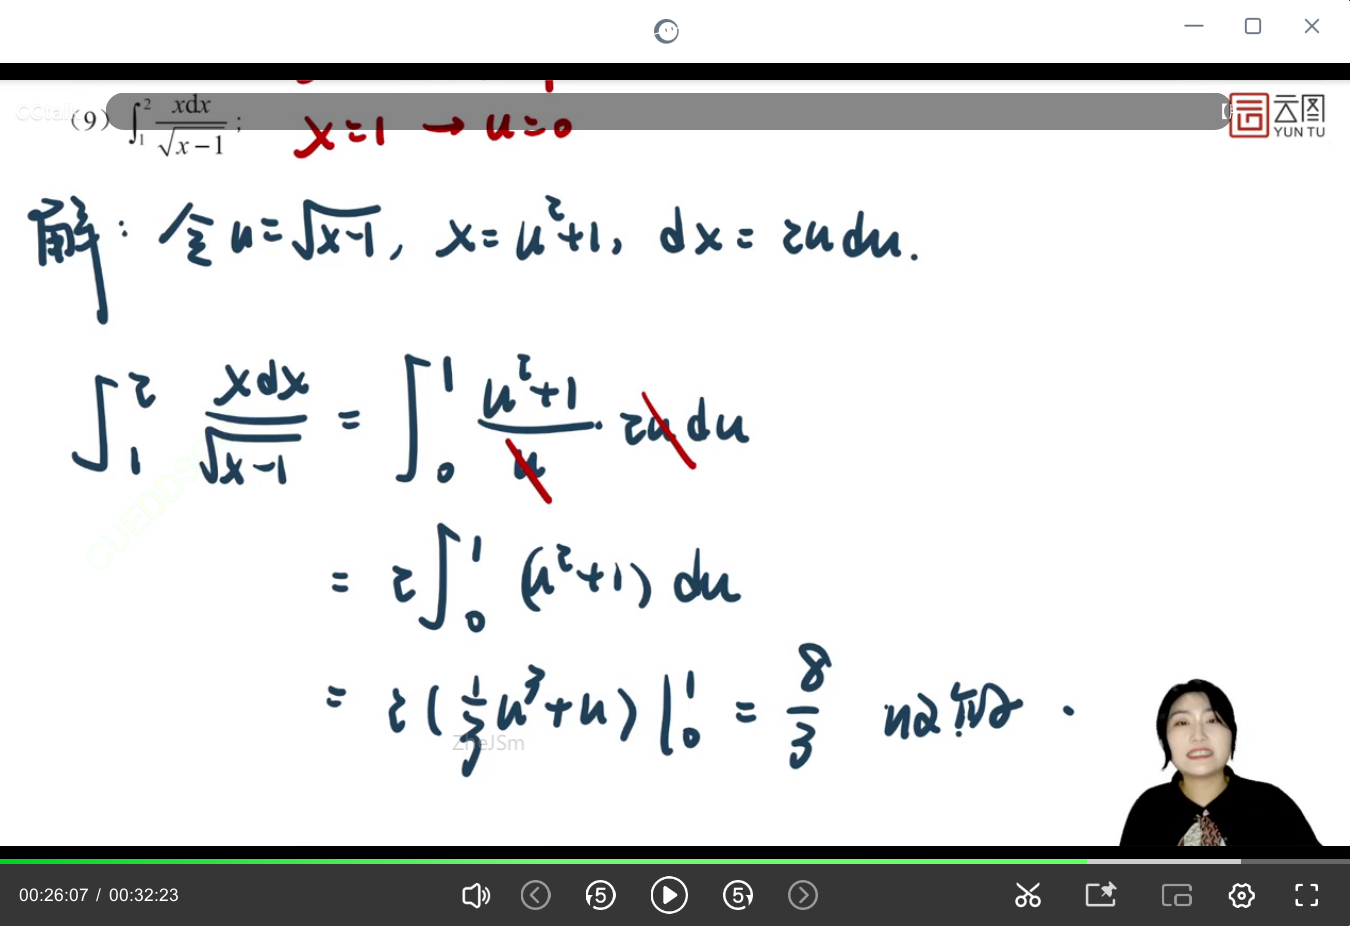 (9) ∫₁² xdx/√(x−1) ;
x=1 → u=0
云图
YUN TU
解: 令 u=√(x-1), x=u²+1, dx=2udu.
∫₁² xdx/√(x-1) = ∫₀¹ (u²+1)/u · 2u du
= 2∫₀¹ (u²+1) du
= 2(1/3 u³+u)|₀¹ = 8/3
ZheJSm
00:26:07 / 00:32:23
5
5